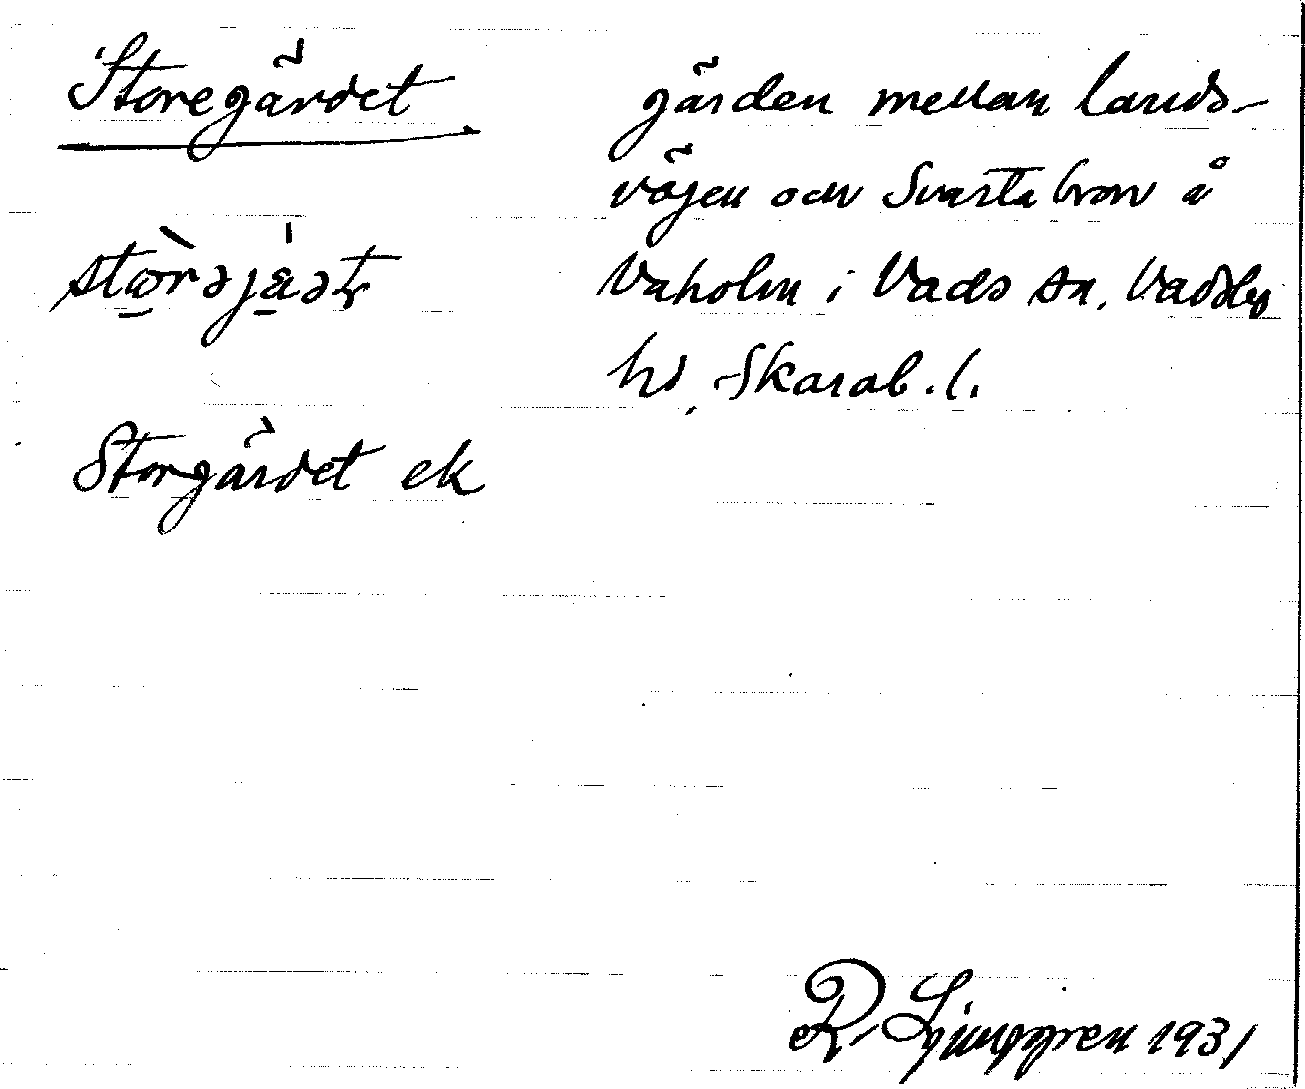 Storegärdet
stòrəjä́ət
Storgärdet ek
gärden mellan lands-
vägen och Svarta bron å
Vaholm i Vads sn, Vadsbo
hd, Skarab. l.
R. Ljunggren 1931